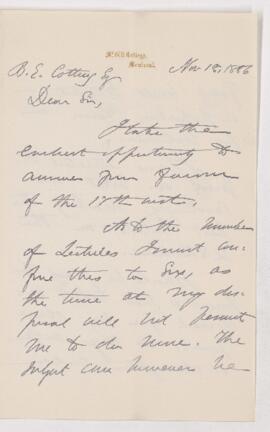 McGill College,
Montreal.
Nov 19, 1886
B. E. Cotting Esq
Dear Sir,
I take the
earliest opportunity to
answer your favour
of the 17th inst.
As to the number
of Lectures I must con-
fine this to Six, as
the time at my dis-
posal will not permit
me to do more. The
subject can however be